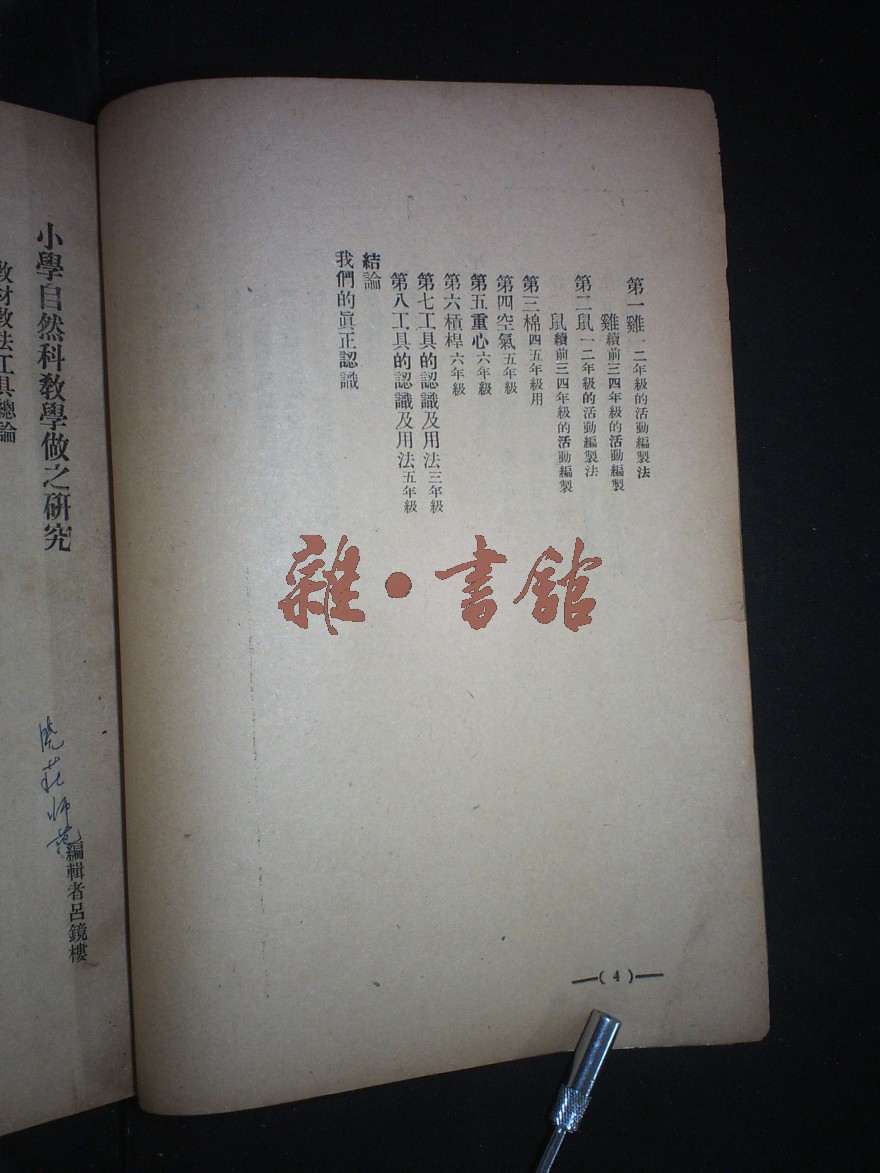 第一雞一二年級的活動編製法
雞續前三四年級的活動編製
第二鼠一二年級的活動編製法
鼠續前三四年級的活動編製
第三棉四五年級用
第四空氣五年級
第五重心六年級
第六槓桿六年級
第七工具的認識及用法三年級
第八工具的認識及用法五年級
結論
我們的眞正認識
—(4)—
雜•書館
小學自然科教學做之研究
教材教法工具總論
曉莊师范
編輯者呂鏡樓